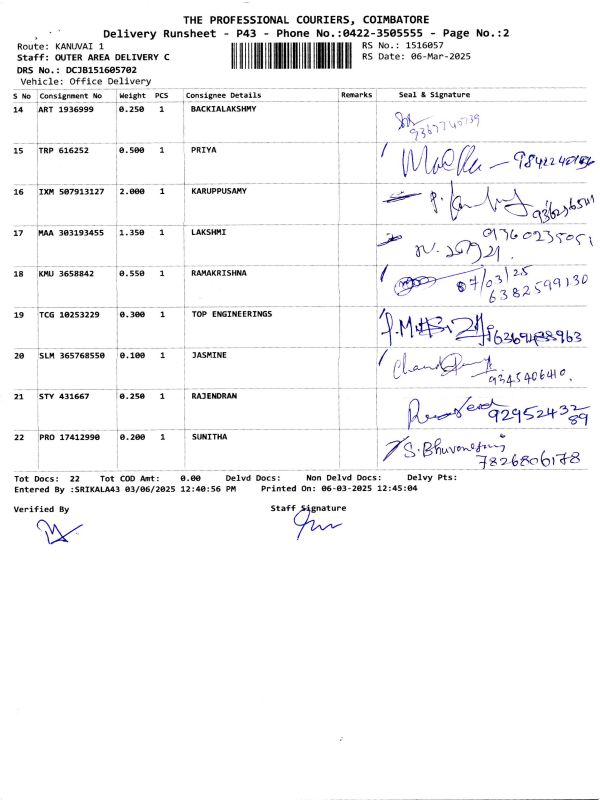 THE PROFESSIONAL COURIERS, COIMBATORE
Delivery Runsheet - P43 - Phone No.:0422-3505555 - Page No.:2
Route: KANUVAI 1 RS No.: 1516057
Staff: OUTER AREA DELIVERY C RS Date: 06-Mar-2025
DRS No.: DCJB151605702
Vehicle: Office Delivery
S No Consignment No Weight PCS Consignee Details Remarks Seal & Signature
14 ART 1936999 0.250 1 BACKIALAKSHMY
15 TRP 616252 0.500 1 PRIYA
16 IXM 507913127 2.000 1 KARUPPUSAMY
17 MAA 303193455 1.350 1 LAKSHMI
18 KMU 3658842 0.550 1 RAMAKRISHNA 07/03/25
6382599130
19 TCG 10253229 0.300 1 TOP ENGINEERINGS
20 SLM 365768550 0.100 1 JASMINE
9345406410.
21 STY 431667 0.250 1 RAJENDRAN
9295243289
22 PRO 17412990 0.200 1 SUNITHA S. Bhuvaneswari
7826806178
Tot Docs: 22 Tot COD Amt: 0.00 Delvd Docs: Non Delvd Docs: Delvy Pts:
Entered By :SRIKALA43 03/06/2025 12:40:56 PM Printed On: 06-03-2025 12:45:04
Verified By Staff Signature